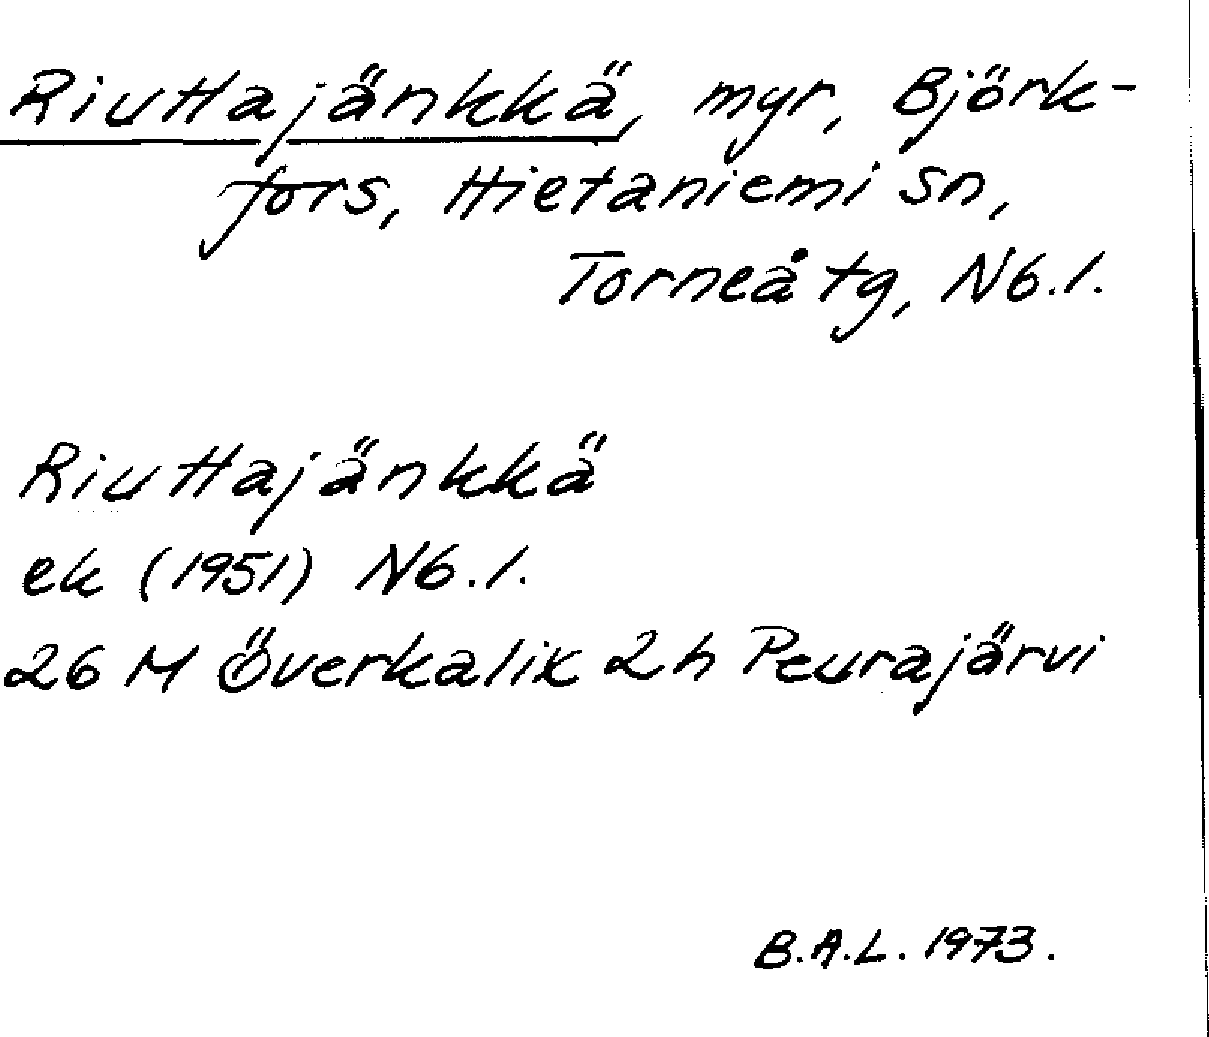 Riuttajänkkä, myr, Björk-
fors, Hietaniemi sn,
Torneå tg, Nb.l.
Riuttajänkkä
ek (1951) Nb.l.
26 M Överkalix 2h Peurajärvi
B.A.L. 1973.